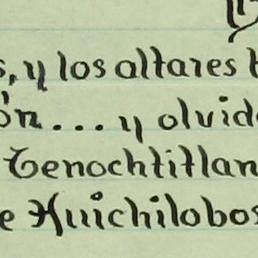 s, y los altares
ón... y olvid
Tenochtitlan
e Huichilobos